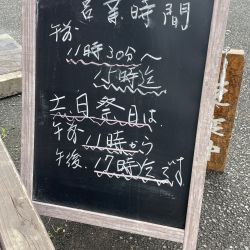 営業時間
午前
11時30分〜
15時迄
土.日祭日は.
午前11時から
午後.17時迄です